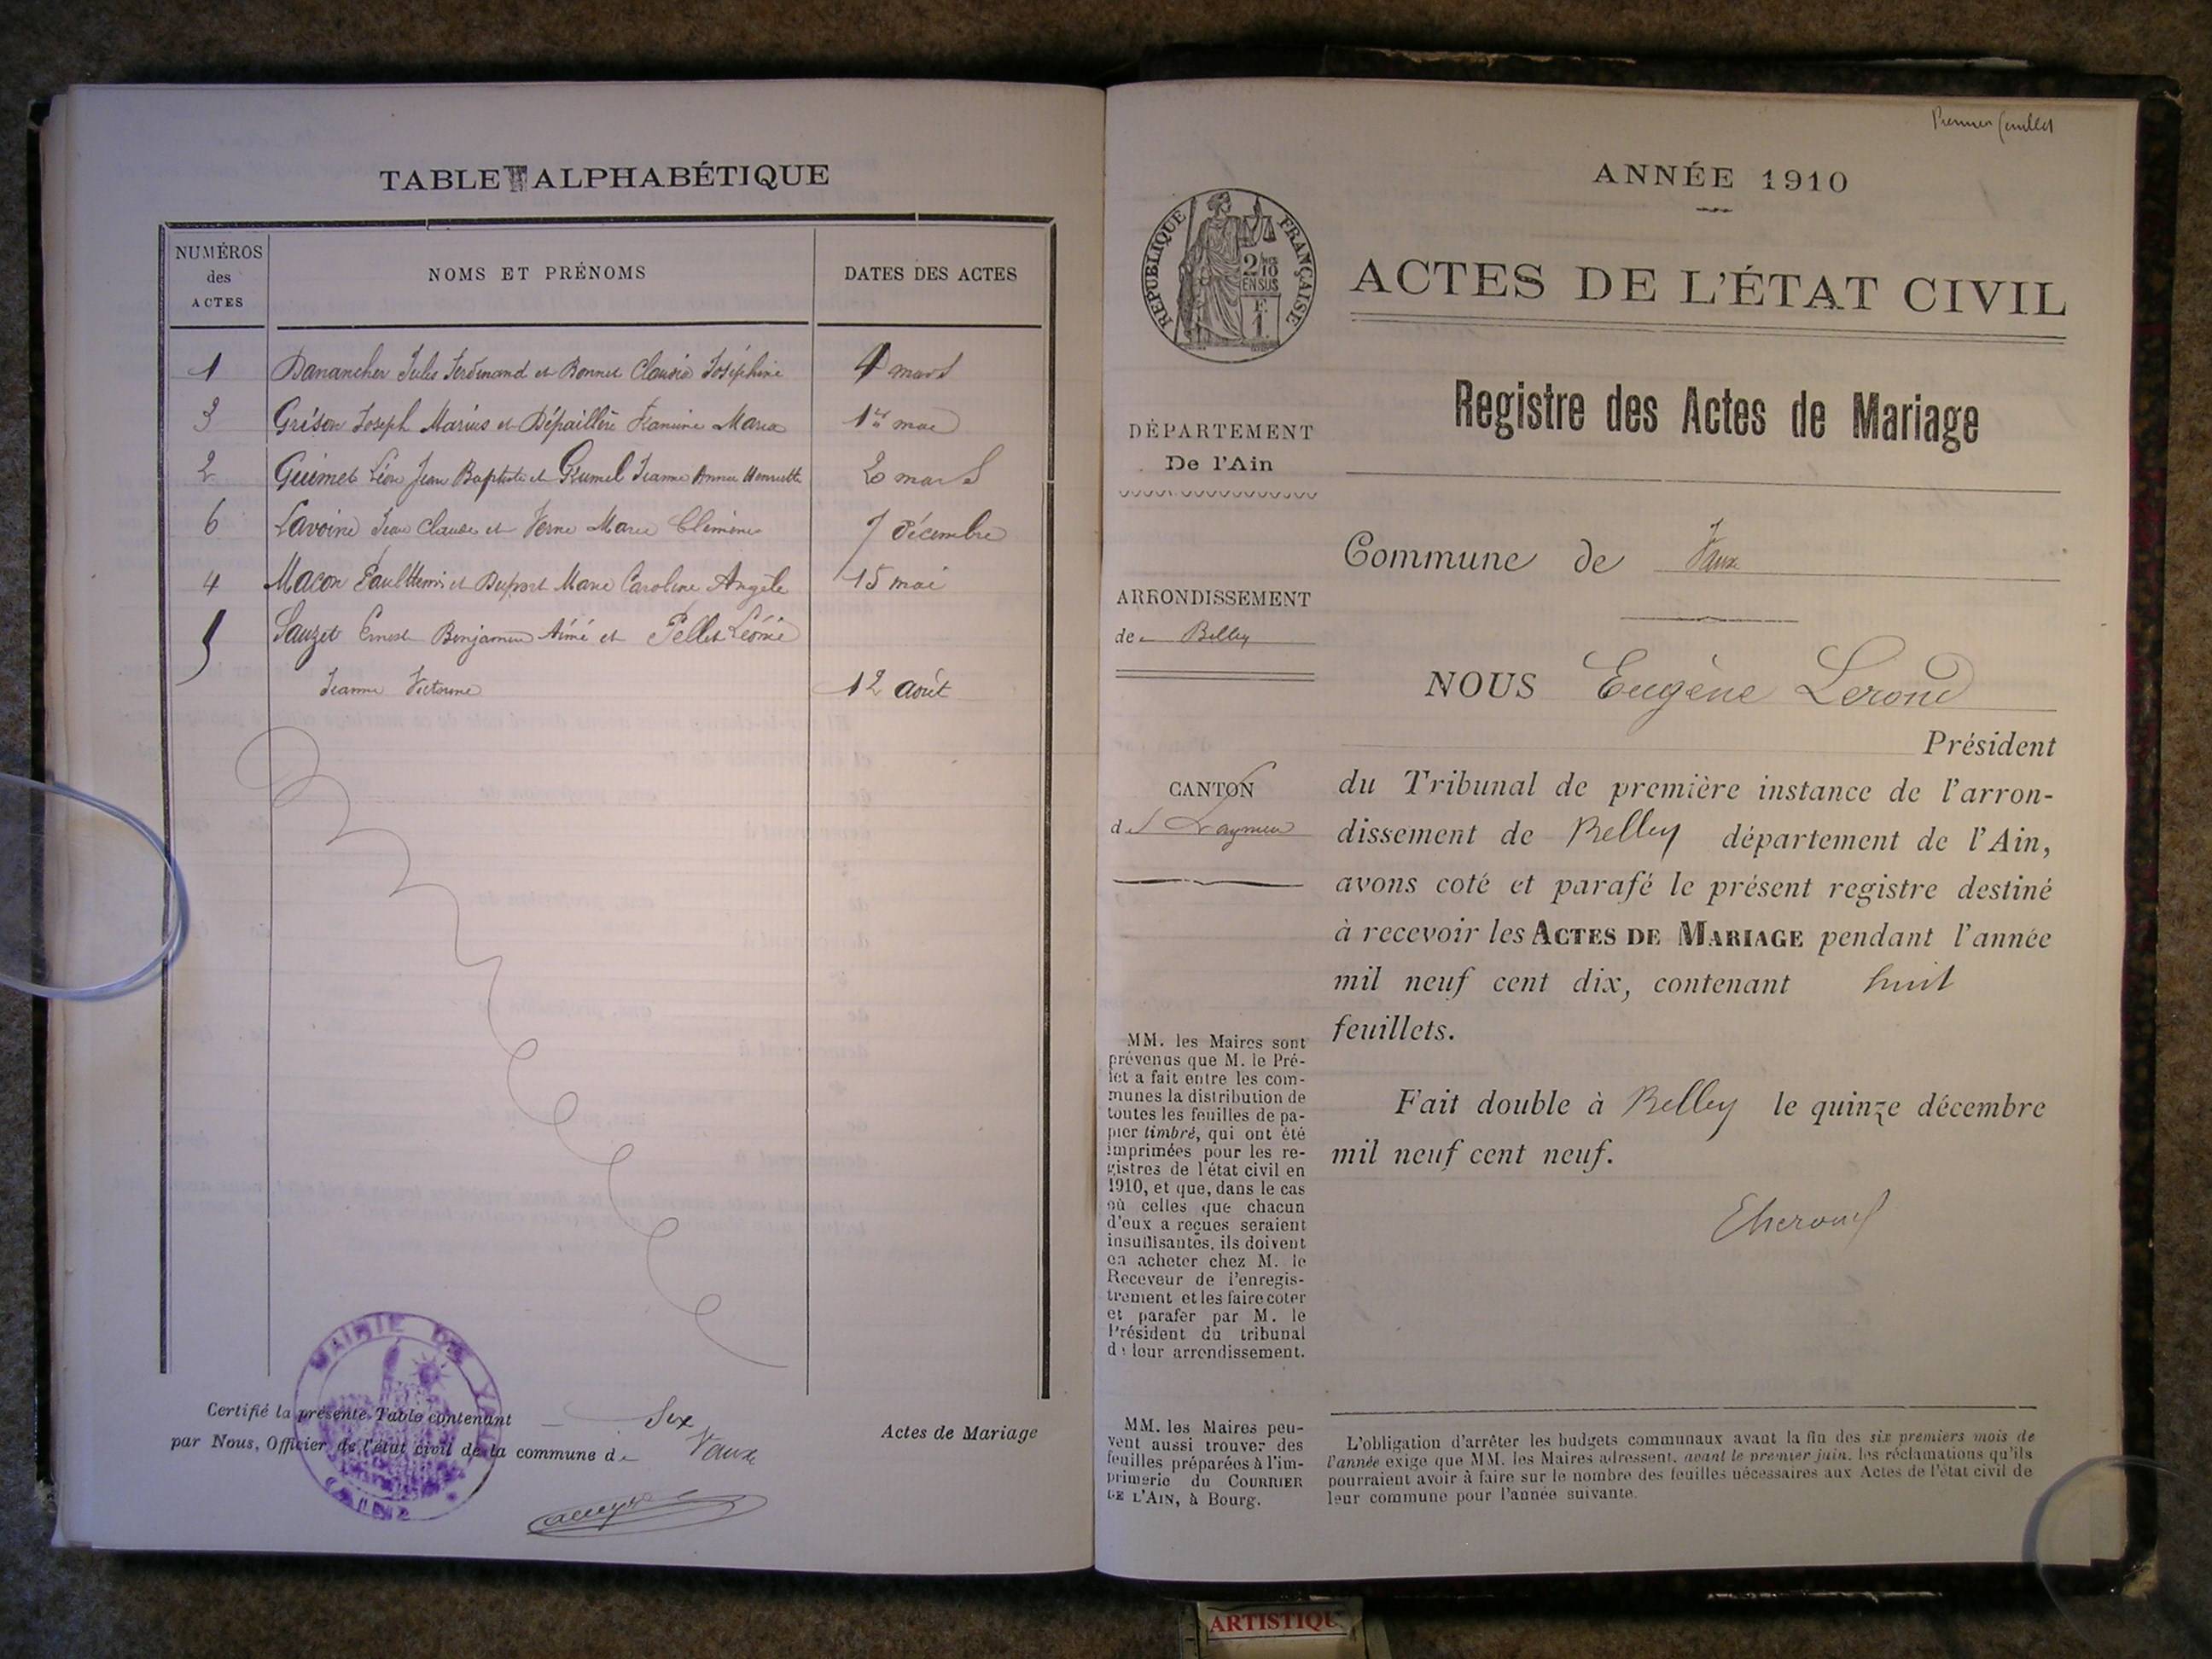 TABLE ALPHABÉTIQUE
NUMÉROS
des
ACTES
NOMS ET PRÉNOMS
DATES DES ACTES
1 Danancher Jules Ferdinand et Bonnet Claudia Joséphine 4 mars
3 Grison Joseph Marius et Dépaillère Maria 1er mai
2 Guimet Léon Jean Baptiste et Grumel Jeanne Anna Henriette 20 mars
6 Lavoine Jean Claude et Verne Marie 7 décembre
4 Macon Paul Henri et Duport Marie Caroline Angèle 15 mai
5 Sauzet Ernest Benjamin Aimé et Pellet Léonie
Jeanne Victorine 12 août
MAIRIE DE VAUX
Certifié la présente Table contenant Six Actes de Mariage
par Nous, Officier de l'état civil de la commune de Vaux
Premier feuillet
ANNÉE 1910
RÉPUBLIQUE FRANÇAISE
2/10
EN SUS
F.
1.
ACTES DE L'ÉTAT CIVIL
Registre des Actes de Mariage
DÉPARTEMENT
De l'Ain
Commune de Vaux
ARRONDISSEMENT
de Belley
NOUS Eugène Lerond
Président
CANTON
de Lagnieu
du Tribunal de première instance de l'arron-
dissement de Belley département de l'Ain,
avons coté et parafé le présent registre destiné
à recevoir les ACTES DE MARIAGE pendant l'année
mil neuf cent dix, contenant huit
feuillets.
Fait double à Belley le quinze décembre
mil neuf cent neuf.
MM. les Maires sont
prévenus que M. le Pré-
fet a fait entre les com-
munes la distribution de
toutes les feuilles de pa-
pier timbré, qui ont été
imprimées pour les re-
gistres de l'état civil en
1910, et que, dans le cas
où celles que chacun
d'eux a reçues seraient
insuffisantes, ils doivent
en acheter chez M. le
Receveur de l'enregis-
trement et les faire coter
et parafer par M. le
Président du tribunal
de leur arrondissement.
MM. les Maires peu-
vent aussi trouver des
feuilles préparées à l'im-
primerie du COURRIER
DE L'AIN, à Bourg.
L'obligation d'arrêter les budgets communaux avant la fin des six premiers mois de
l'année exige que MM. les Maires adressent, avant le premier juin, les réclamations qu'ils
pourraient avoir à faire sur le nombre des feuilles nécessaires aux Actes de l'état civil de
leur commune pour l'année suivante.
ARTISTIQU